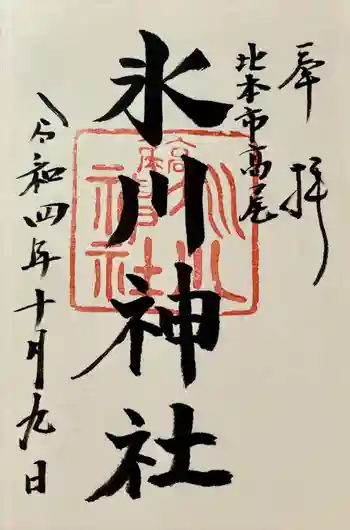 奉拝
北本市高尾
氷川神社
令和四年十月九日